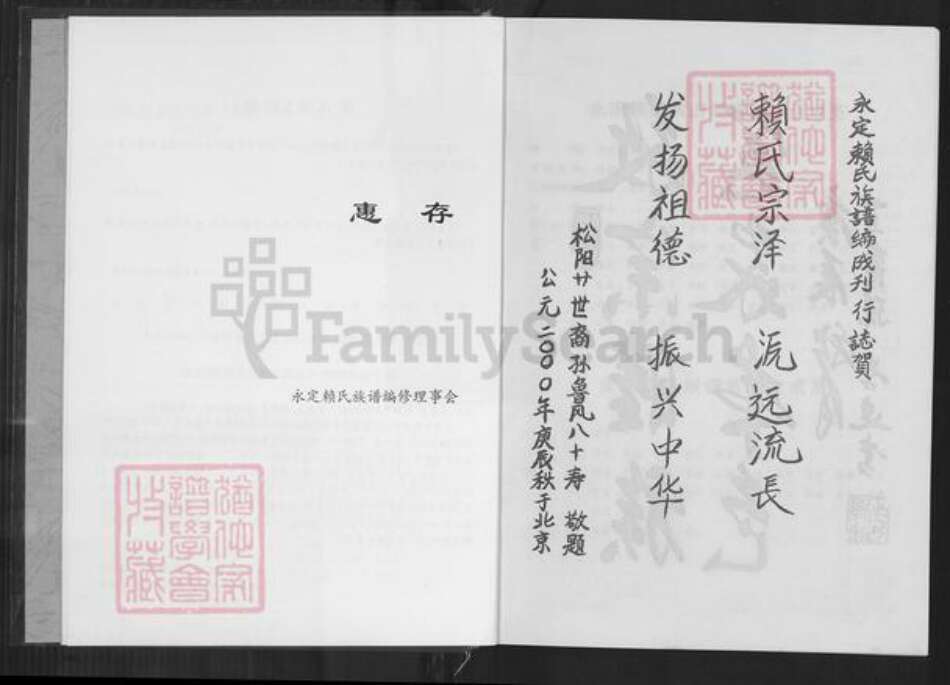 永定賴氏族譜編成刊行誌賀
賴氏宗泽 沠远流長
发扬祖德 振兴中华
松阳廿世裔孙鲁凤八十寿 敬题
公元二〇〇〇年庚辰秋于北京
惠存
永定赖氏族谱编修理事会
猶他家
譜學會
收藏
FamilySearch